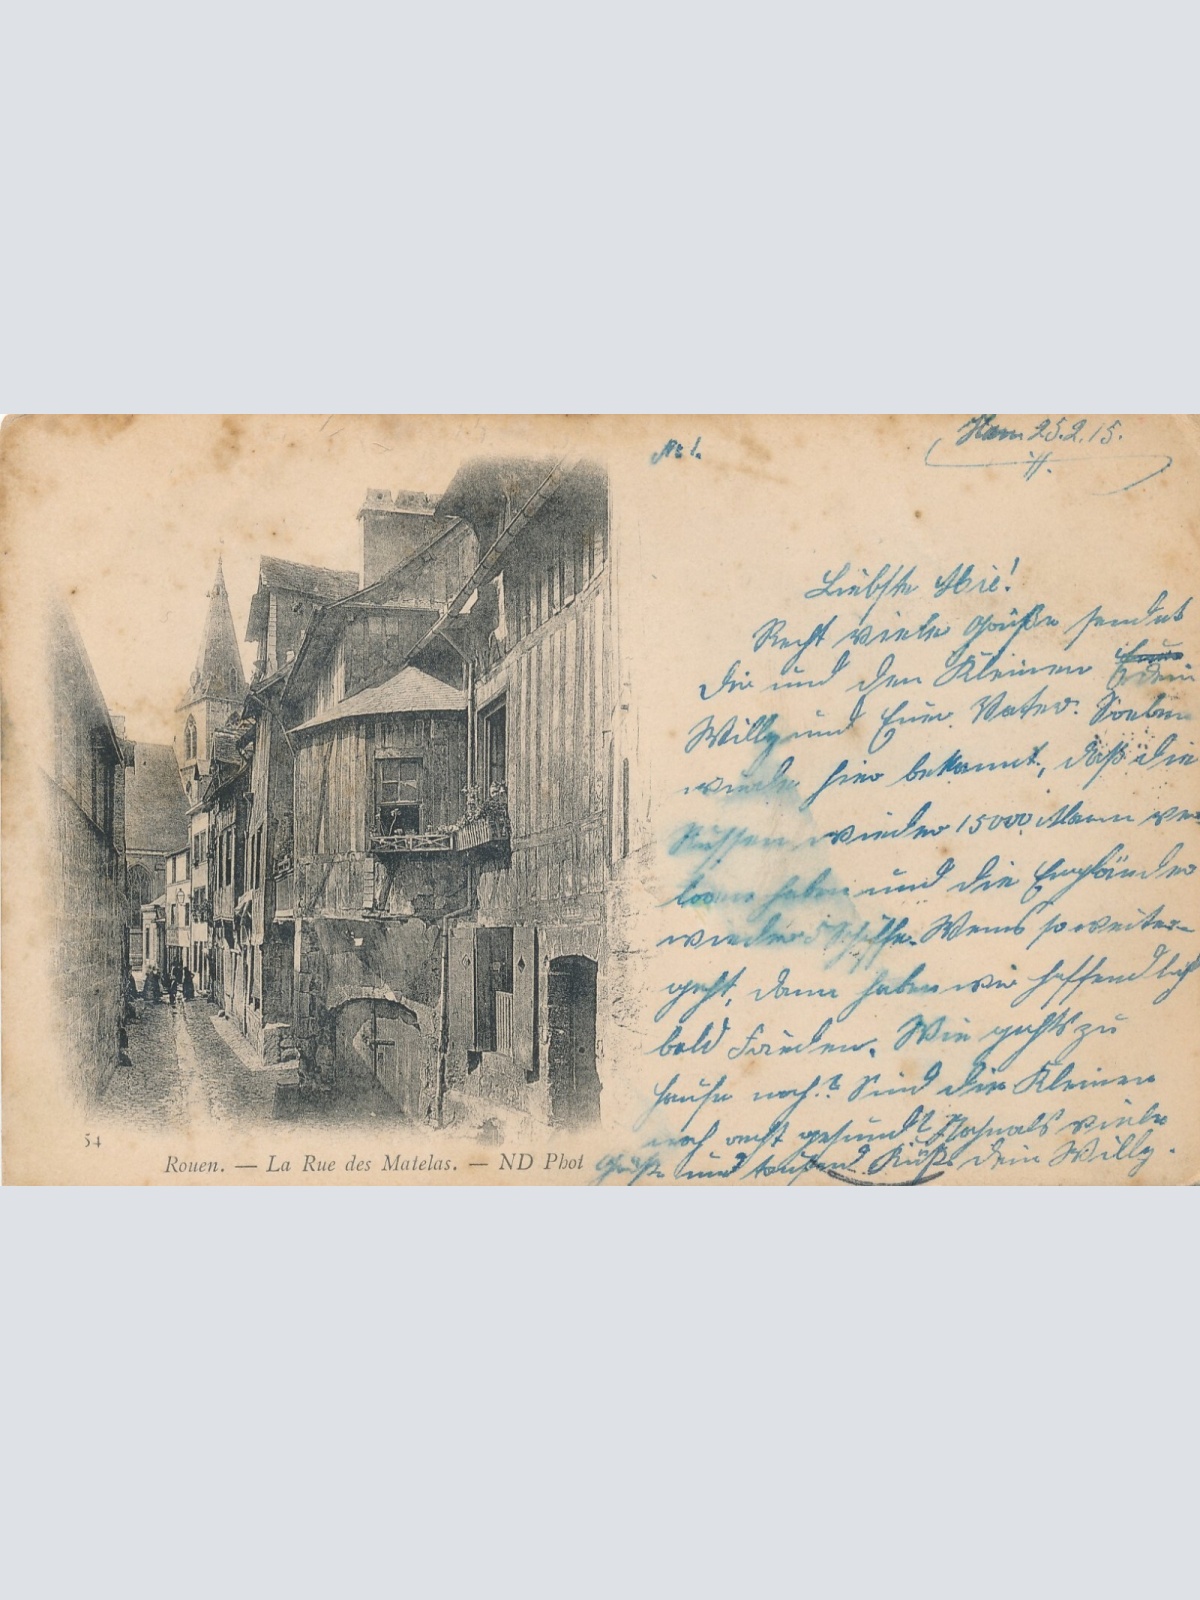 No 1.
Ham 25.2.15.
Liebste Mie!
Recht viele Grüße sendet
Dir und den Kleinen dein
Willy und Euer Vater. Soeben
wurde hier bekannt, daß die
Russen wieder 15000 Mann ver
loren haben und die Engländer
wieder 5 Schiffe. Wenns so weiter
geht, dann haben wir hoffendlich
bald Frieden. Wie gehts zu
Hause noch? Sind die Kleinen
noch recht gesund? Nochmals viele
Grüße und tausend Küße dein Willy.
54
Rouen. — La Rue des Matelas. — ND Phot